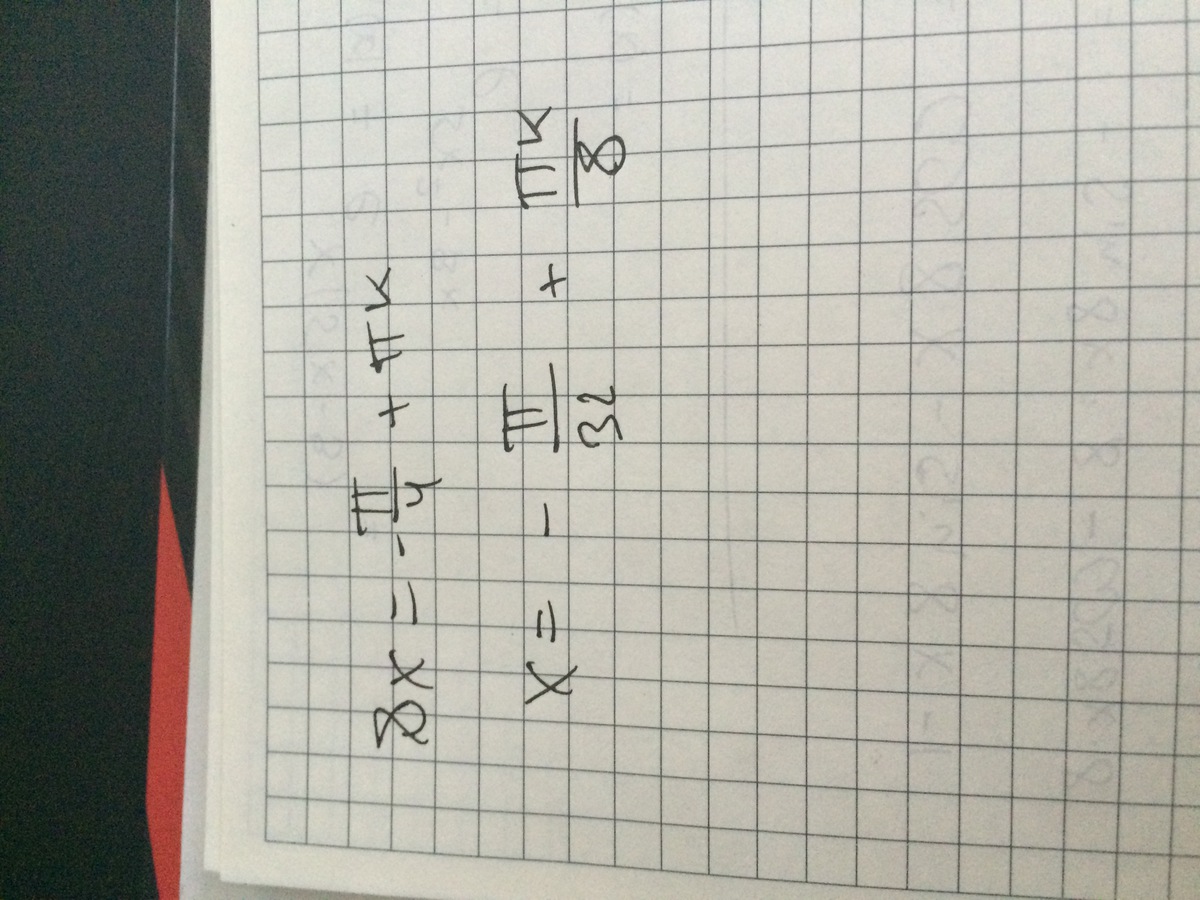 8x = - π/4 + πк
x = - π/32 + πк/8